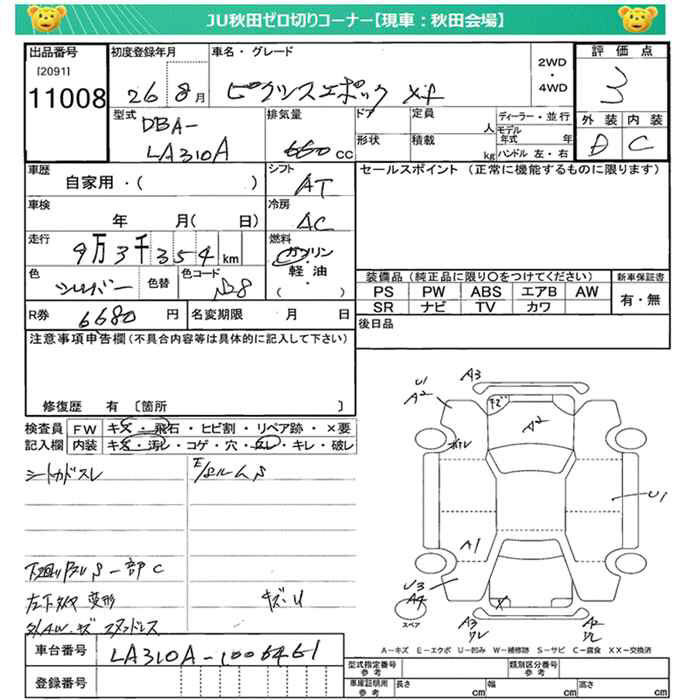 JU秋田ゼロ切りコーナー【現車：秋田会場】
出品番号
[2091]
11008
初度登録年月
26 8月
車名・グレード
ピクシスエポック Xf
2WD
・
4WD
評価点
3
外装 内装
D C
型式
DBA-
LA310A
排気量
660 cc
ドア
形状
定員
人
積載
kg
ディーラー・並行
モデル年式 年
ハンドル 左・右
車歴
自家用・( )
シフト
AT
セールスポイント (正常に機能するものに限ります)
車検
年 月( 日)
冷房
AC
走行
9万3千354km
燃料
ガソリン
・
軽油
( )
色
シルバー
色替
色コード
S28
装備品 (純正品に限り〇をつけてください)
PS PW ABS エアB AW
SR ナビ TV カワ
新車保証書
有・無
R券
6680円
名変期限 月 日
後日品
注意事項申告欄(不具合内容等は具体的に記入して下さい)
修復歴 有 〔箇所 〕
検査員 FW キズ・飛石・ヒビ割・リペア跡・×要
記入欄 内装 キズ・汚レ・コゲ・穴・スレ・キレ・破レ
E/ルームS
下廻りS一部C
左下 変形
キズ・U
スタッドレス
A3
U1
A2
キズ
A2
U1
A1
U3
A4
スペア
A3
ワレ
A2
A-キズ E-エクボ U-凹み W-補修跡 S-サビ C-腐食 XX-交換済
車台番号
LA310A-1006461
登録番号
型式指定番号
参考
類別区分番号
参考
車庫証明用
参考
長さ cm 幅 cm 高さ cm